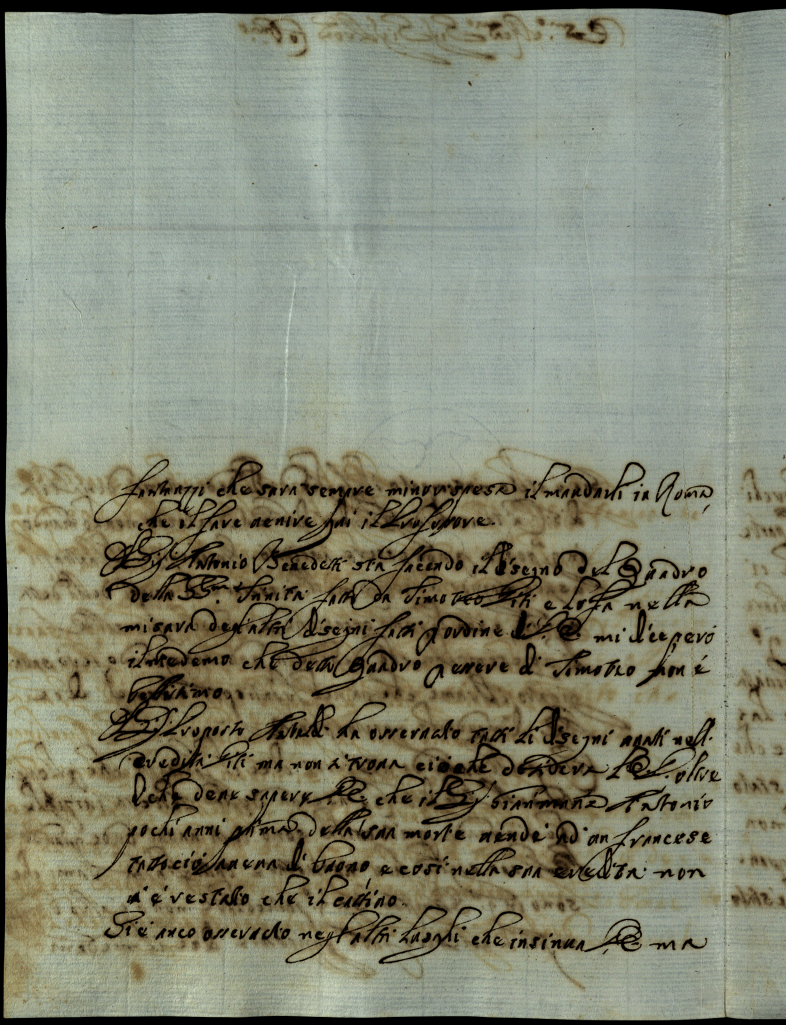 che sarà sempre minor spesa il mandarli in Roma,
che il fare venire qui il Professore.
Il Sig. Antonio Benedetti sta facendo il disegno del Quadro
della SS.ma Trinità fatto da Timoteo Viti e lo fa nella
misura degl'altri disegni fatti d'ordine di V.E. mi dice però
il medemo che detto Quadro per essere di Timoteo non è
bellissimo.
Il Sig. Proposto ha osservato tutti li disegni avuti nell'
eredità Viti ma non vi trova ciò che desidera V.E. oltre
che deve sapere V.E. che il Sig. Antonio
pochi anni prima della sua morte vendè ad un francese
tutto ciò aveva di buono, e così nella sua eredità non
vi è restato che il cattivo.
Si è anco osservato negl'altri luoghi che insinua V.E. ma